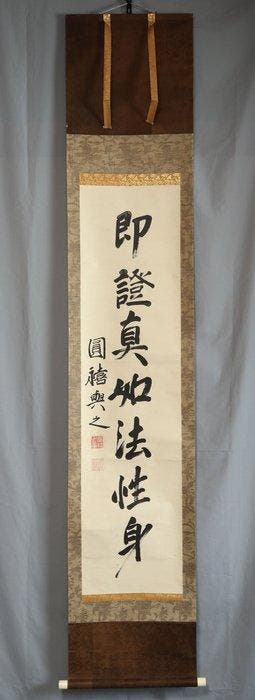 即證真如法性身
圓禧興之